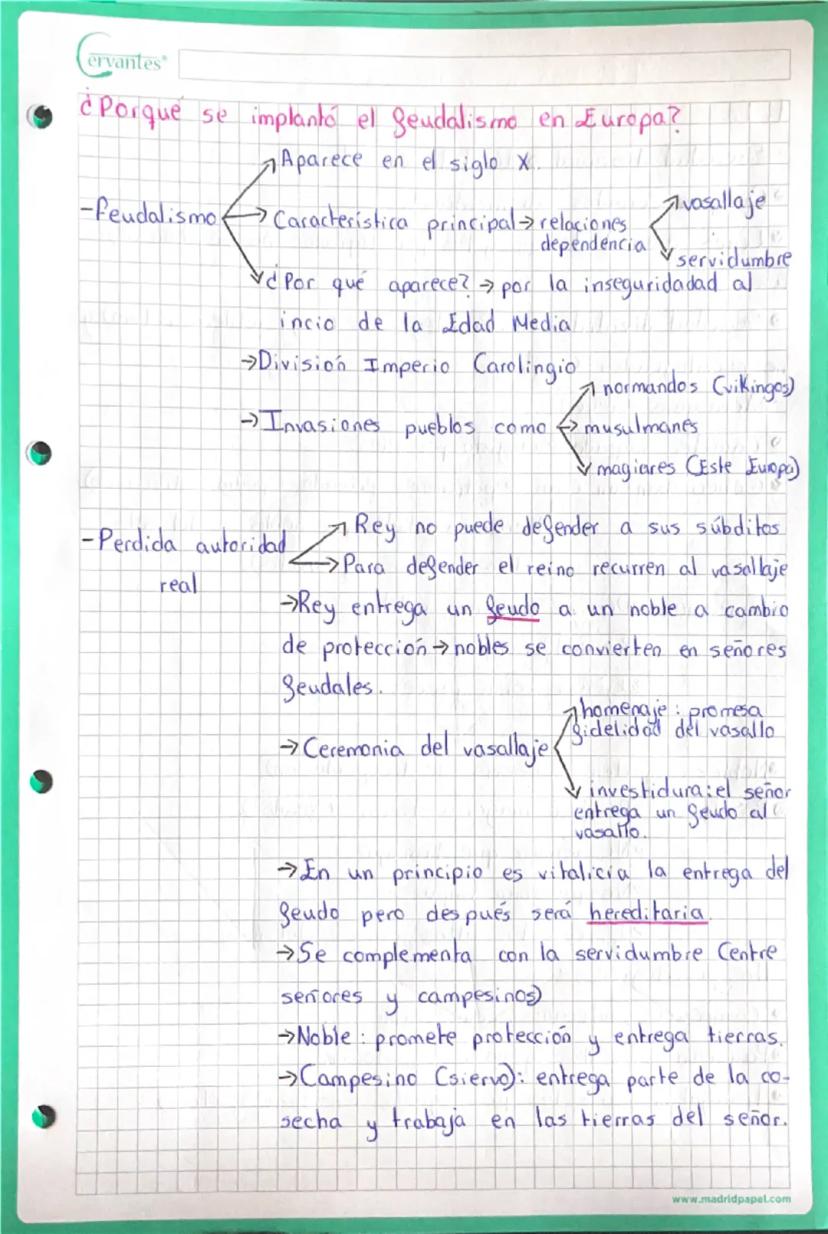 Cervantes®
¿Porqué se implantó el feudalismo en Europa?
Aparece en el siglo X.
-feudalismo
Característica principal→relaciones
dependencia
vasallaje
servidumbre
¿Por qué aparece?→por la inseguridadad al
incio de la Edad Media
→División Imperio Carolingio
→Invasiones pueblos como
normandos (vikingos)
musulmanes
magiares (Este Europa)
-Perdida autoridad
real
Rey no puede defender a sus súbditos
Para defender el reino recurren al vasallaje
→Rey entrega un feudo a un noble a cambio
de protección→nobles se convierten en señores
feudales.
→Ceremonia del vasallaje
homenaje: promesa
fidelidad del vasallo
investidura: el señor
entrega un feudo al
vasallo.
→En un principio es vitalicia la entrega del
feudo pero después será hereditaria
→Se complementa con la servidumbre (entre
señores y campesinos)
→Noble: promete protección y entrega tierras.
→Campesino (siervo): entrega parte de la co-
secha y trabaja en las tierras del señor.
www.madridpapel.com